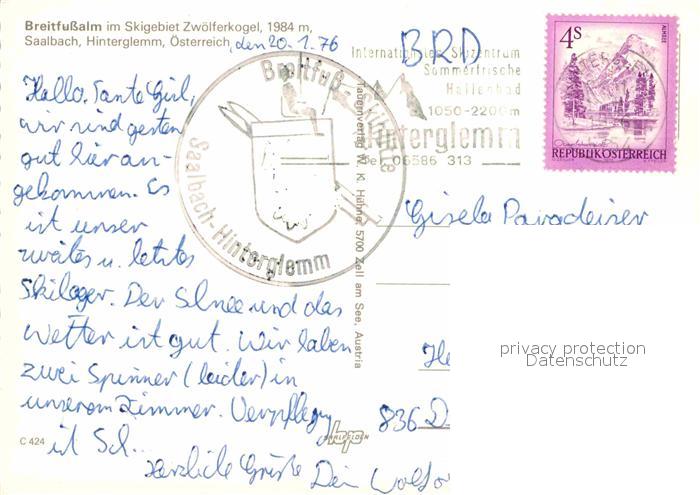 Breitfußalm im Skigebiet Zwölferkogel, 1984 m,
Saalbach, Hinterglemm, Österreich
den 20.1.76
Hallo, Tante Gisl,
wir sind gestern
gut hier an-
gekommen. Es
ist unser
zweites u. letztes
Skilager. Der Schnee und das
Wetter ist gut. Wir haben
zwei Spinner (leider) in
unserem Zimmer. Verpflegung
ist
Herzliche Grüße Dein
C 424
BRD
Internationales Skizentrum
Sommerfrische
Hallenbad
1050-2200m
Hinterglemm
Tel. 06586 313
Breitfuß-Skihütte
Saalbach-Hinterglemm
Bauernverlag W. K. Hühner, 5700 Zell am See, Austria
4S
ALMSEE
REPUBLIK ÖSTERREICH
Gisela Paradeiser
He
836 D
privacy protection
Datenschutz
SAALFELDEN